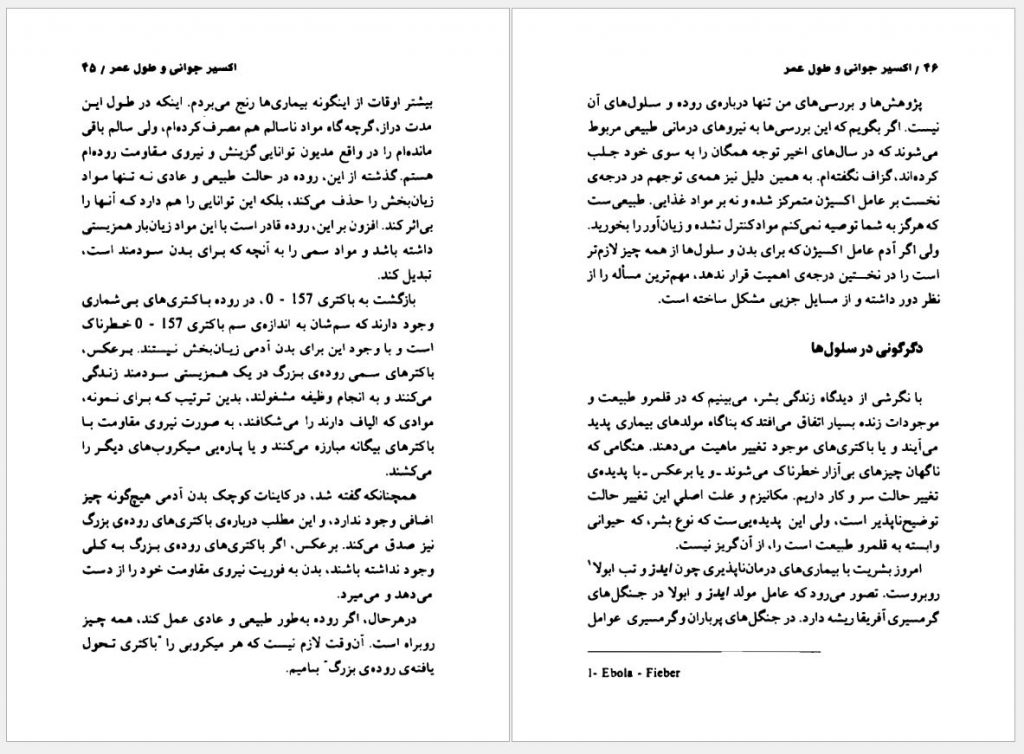 اکسیر جوانی و طول عمر / ۴۵
بیشتر اوقات از اینگونه بیماری‌ها رنج می‌بردم. اینکه در طول این
مدت دراز،گرچه‌گاه مواد ناسالم هم مصرف‌کرده‌ام، ولی سالم باقی
مانده‌ام را در واقع مدیون توانایی‌گزینش و نیروی مقاومت روده‌ام
هستم.گذشته از این، روده در حالت طبیعی و عادی نه تنها مواد
زیان‌بخش را حذف می‌کند، بلکه این توانایی را هم دارد که آنها را
بی‌اثر کند. افزون بر این، روده قادر است با این مواد زیان‌بار همزیستی
داشته باشد و مواد سمی را به آنچه که برای بدن سودمند است،
تبدیل کند.
بازگشت به باکتری 157 - 0، در روده باکتری‌های بی‌شماری
وجود دارند که سم‌شان به اندازه‌ی سم باکتری 157 - 0 خطرناک
است و با وجود این برای بدن آدمی زیان‌بخش نیستند. برعکس،
باکترهای سمی روده‌ی بزرگ در یک همزیستی سودمند زندگی
می‌کنند و به انجام وظیفه مشغولند، بدین ترتیب که برای نمونه،
موادی که الیاف دارند را می‌شکافند، به صورت نیروی مقاومت با
باکترهای بیگانه مبارزه می‌کنند و یا پاره‌یی میکروب‌های دیگر را
می‌کشند.
همچنانکه گفته شد، در کاینات کوچک بدن آدمی هیچ‌گونه چیز
اضافی وجود ندارد، و این مطلب درباره‌ی باکتری‌های روده‌ی بزرگ
نیز صدق می‌کند. برعکس، اگر باکتری‌های روده‌ی بزرگ به کلی
وجود نداشته باشند، بدن به فوریت نیروی مقاومت خود را از دست
می‌دهد و می‌میرد.
درهرحال، اگر روده به‌طور طبیعی و عادی عمل کند، همه چیز
روبراه است. آن‌وقت لازم نیست که هر میکروبی را "باکتری تحول
یافته‌ی روده‌ی بزرگ" بنامیم.
۴۶ / اکسیر جوانی و طول عمر
پژوهش‌ها و بررسی‌های من تنها درباره‌ی روده و سلول‌های آن
نیست. اگر بگویم که این بررسی‌ها به نیروهای درمانی طبیعی مربوط
می‌شوند که در سال‌های اخیر توجه همگان را به سوی خود جلب
کرده‌اند،گزاف نگفته‌ام. به همین دلیل نیز همه‌ی توجهم در درجه‌ی
نخست بر عامل اکسیژن متمرکز شده و نه بر مواد غذایی. طبیعی‌ست
که هرگز به شما توصیه نمی‌کنم موادکنترل نشده و زیان‌آور را بخورید.
ولی اگر آدم عامل اکسیژن‌که برای بدن و سلول‌ها از همه چیز لازم‌تر
است را در نخستین درجه‌ی اهمیت قرار ندهد، مهم‌ترین مسأله را از
نظر دور داشته و از مسایل جزیی مشکل ساخته است.
دگرگونی در سلول‌ها
با نگرشی از دیدگاه زندگی بشر، می‌بینیم که در قلمرو طبیعت و
موجودات زنده بسیار اتفاق می‌افتد که بناگاه مولدهای بیماری پدید
می‌آیند و یا باکتری‌های موجود تغییر ماهیت می‌دهند. هنگامی که
ناگهان چیزهای بی‌آزار خطرناک می‌شوند ـ و یا برعکس ـ با پدیده‌ی
تغییر حالت سر و کار داریم. مکانیزم و علت اصلی این تغییر حالت
توضیح‌ناپذیر است، ولی این پدیده‌یی‌ست که نوع بشر، که حیوانی
وابسته به قلمرو طبیعت است را، از آن گریز نیست.
امروز بشریت با بیماری‌های درمان‌ناپذیری چون ایدز و تب ابولا۱
روبروست. تصور می‌رود که عامل مولد ایدز و ابولا در جنگل‌های
گرمسیری آفریقا ریشه دارد. در جنگل‌های پرباران وگرمسیری عوامل
1- Ebola - Fieber